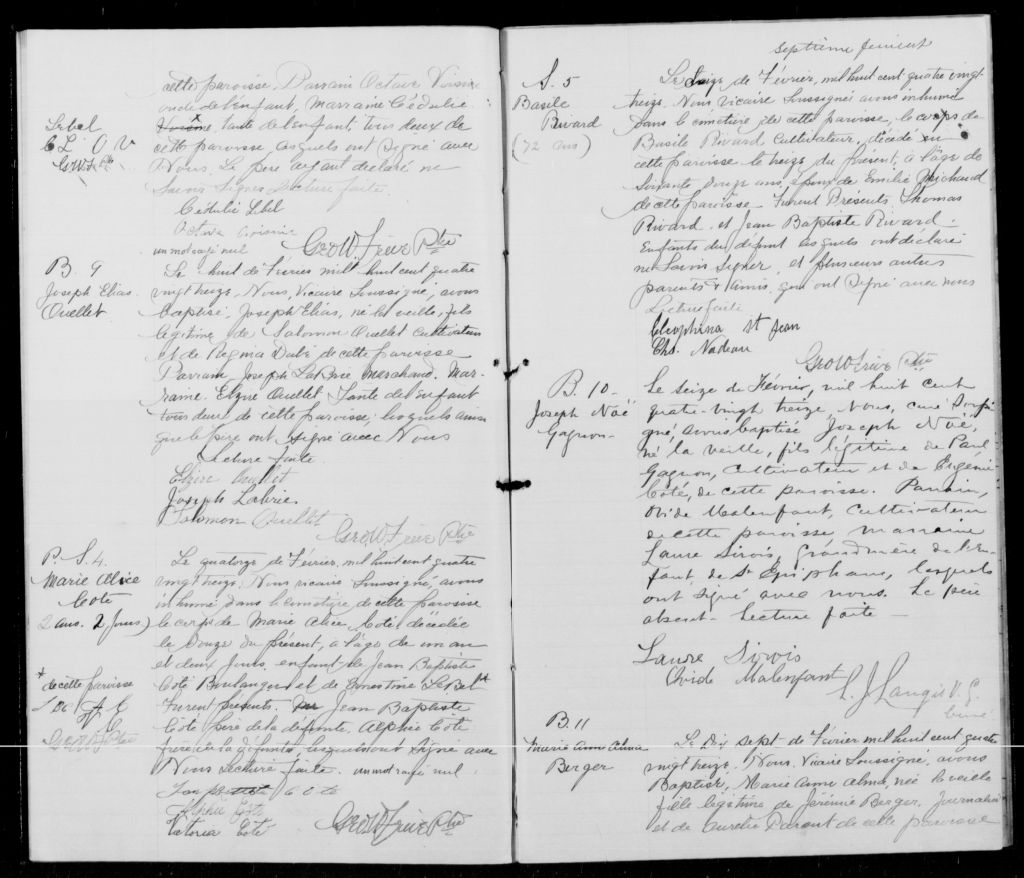 cette paroisse. Parrain Octave Voisine
oncle de l'enfant, Marraine Cédulie
Lebel
tante de l'enfant, tous deux de
C L O V
cette paroisse lesquels ont signé avec
Nous. Le père ayant déclaré ne
Savoir Signer Lecture faite.
Cédulie Lbel
Octave Voisine
un mot rayé nul
Ptre
B. 9
Joseph Elias
Ouellet
Le huit de Février mil huit cent quatre
vingt treize, Nous, Vicaire Soussigné, avons
baptisé, Joseph Elias, né la veille, fils
légitime de Salomon Ouellet Cultivateur
et de Régina Dubé de cette paroisse
Parrain, Joseph LaBrie marchand. Mar-
raine Elzire Ouellet Tante de l'Enfant
tous deux de cette paroisse, lesquels ainsi
que le père ont signé avec Nous
Lecture faite.
Elzire Ouellet
Joseph Labrie
Salomon Ouellet
Ptre
P. S. 4.
Marie Alice
Coté
2 ans. 2 jours)
Le quatorze de Février, mil huit cent quatre
vingt treize, Nous vicaire Soussigné, avons
inhumé dans le cimetière de cette paroisse
le corps de Marie Alice, Coté décédée
le douze du présent, à l'âge de un an
et deux jours, enfant de Jean Baptiste
* de cette paroisse
Coté Boulanger et de Ernestine LeBel *
Furent présents. Jean Baptiste
Coté père de la défunte, Alphée Coté
frère de la défunte, lesquels ont Signé avec
Nous Lecture faite. un mot rayé nul.
Alphée Coté
Victoria Coté
Ptre
septième feuillet
S. 5
Basile
Rivard
(72 ans)
Le Seize de Février, mil huit cent quatre vingt
treize. Nous vicaire Soussigné avons inhumé
dans le cimetière de cette paroisse, le corps de
Basile Rivard Cultivateur, décédé en
cette paroisse le treize du présent, à l'âge de
Soixante douze ans, époux de Emilie Michaud
de cette paroisse. Furent Présents, Thomas
Rivard et Jean Baptiste Rivard -
Enfants du défunt lesquels ont déclaré
ne Savoir Signer, et plusieurs autres
parents & Amis, qui ont Signé avec nous
Lecture faite
Cléophina St Jean
Chs. Nadeau
Ptre
B. 10 -
Joseph Noë
Gagnon -
Le seize de Février, mil huit cent
quatre-vingt treize, Nous, curé soussi-
gné, avons baptisé Joseph Noë,
né la veille, fils légitime de Paul
Gagnon, Cultivateur et de Eugénie
Coté, de cette paroisse. Parrain,
Ovide Malenfant, cultivateur
de cette paroisse, marraine
Laure Sirois, Grandmère de l'en-
fant, de St Epiphane, lesquels
ont signé avec nous. Le père
absent - Lecture faite -
Laure Sirois
Ovide Malenfant
L. J. Langis V. G.
curé
B. 11
Marie Anne Alma
Berger
Le Dix sept de Février mil huit cent quatre
vingt treize. Nous. Vicaire Soussigné, avons
Baptisé, Marie Anne Alma, née la veille
fille légitime de Jérémie Berger, Journalier
et de Aurélie Parant de cette paroisse